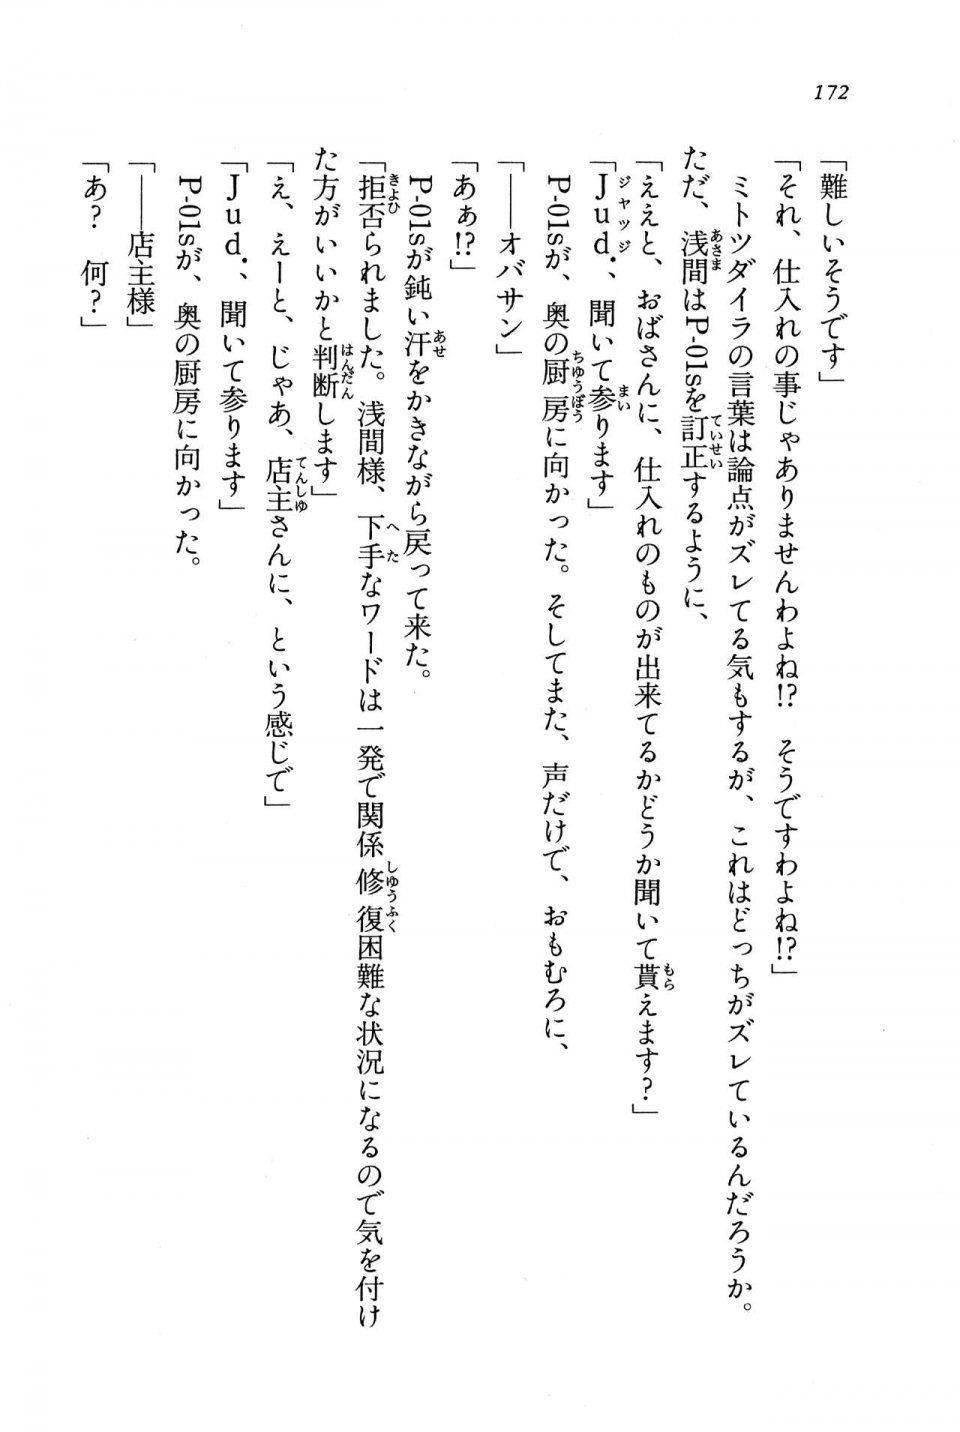 172
「難しいそうです」
「それ、仕入れの事じゃありませんわよね!?　そうですわよね!?」
ミトツダイラの言葉は論点がズレてる気もするが、これはどっちがズレているんだろうか。
ただ、浅間はP-01sを訂正するように、
「ええと、おばさんに、仕入れのものが出来てるかどうか聞いて貰えます？」
「Jud.、聞いて参ります」
P-01sが、奥の厨房に向かった。そしてまた、声だけで、おもむろに、
「――オバサン」
「あぁ!?」
P-01sが鈍い汗をかきながら戻って来た。
「拒否られました。浅間様、下手なワードは一発で関係修復困難な状況になるので気を付け
た方がいいかと判断します」
「え、えーと、じゃあ、店主さんに、という感じで」
「Jud.、聞いて参ります」
P-01sが、奥の厨房に向かった。
「――店主様」
「あ？　何？」